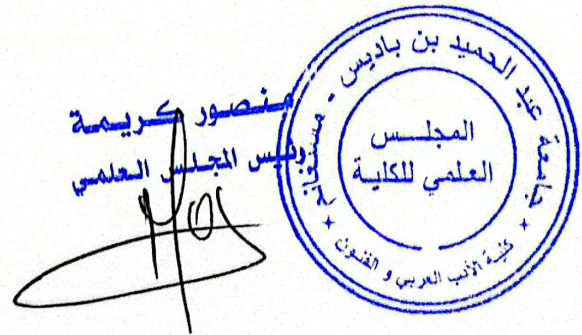 منصور كريمة
رئيس المجلس العلمي
جامعة عبد الحميد بن باديس - مستغانم
المجلس
العلمي للكلية
كلية الأدب العربي و الفنون